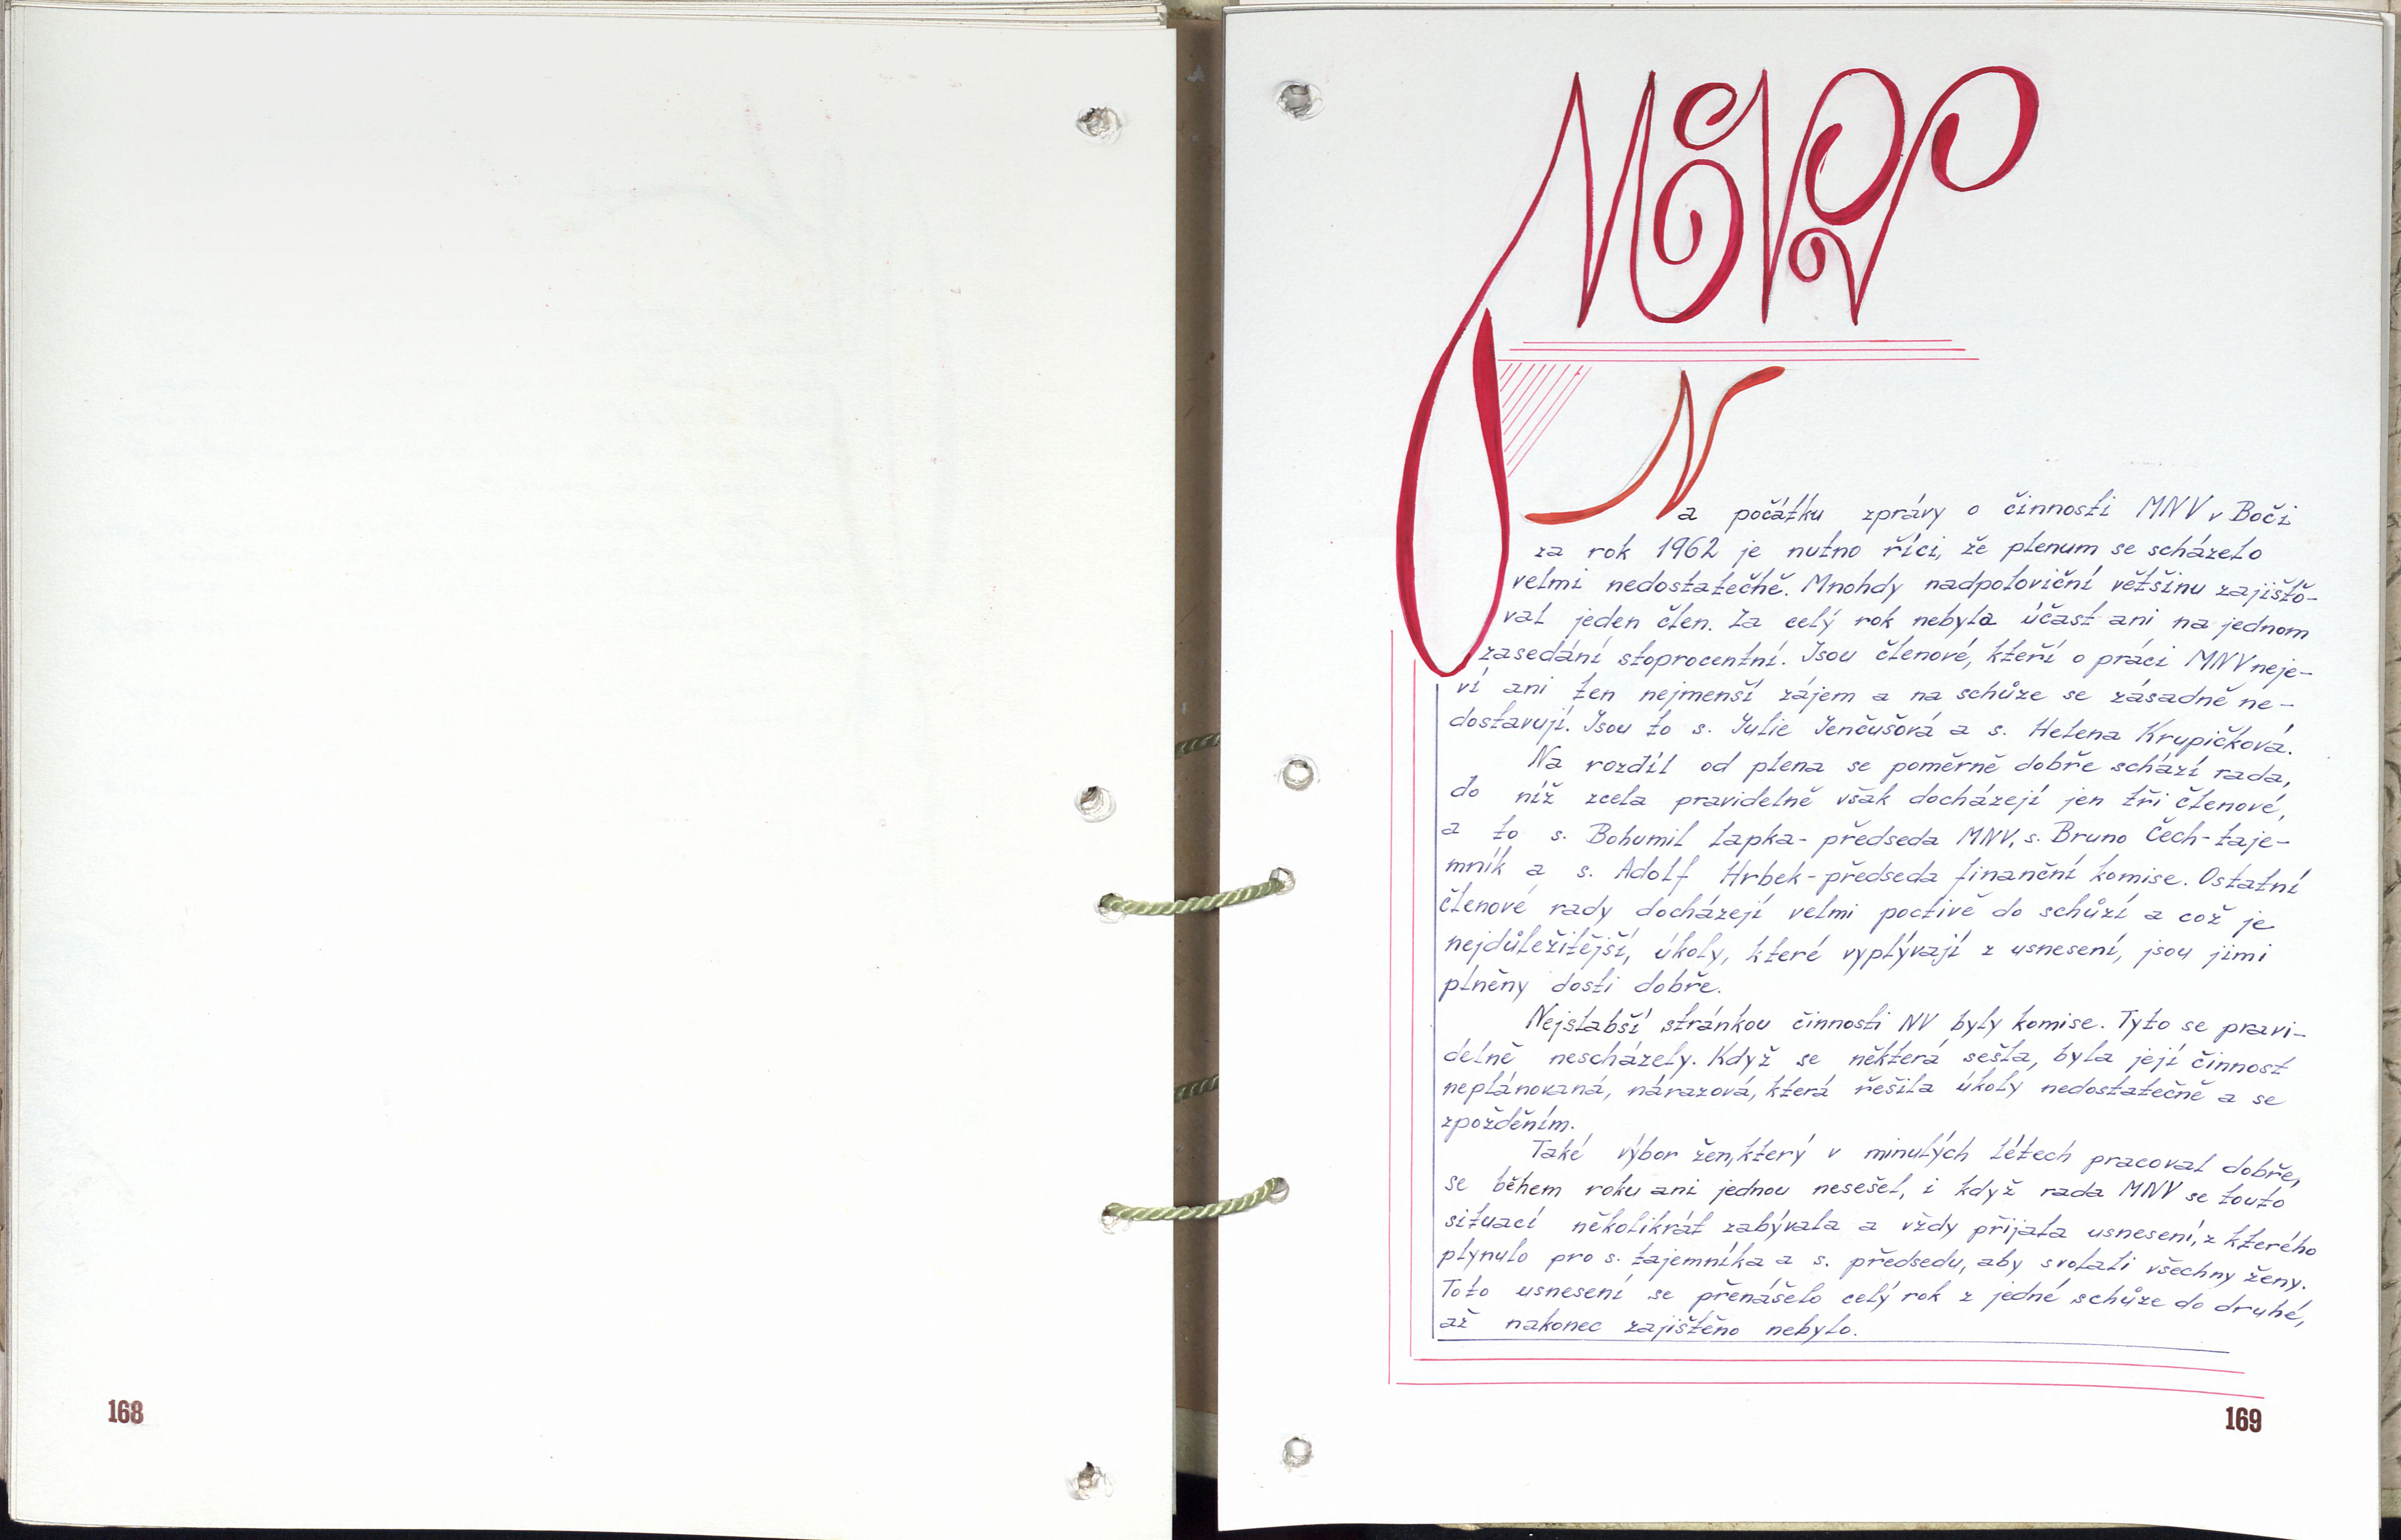 MNV
Na počátku zprávy o činnosti MNV v Boči
za rok 1962 je nutno říci, že plenum se scházelo
velmi nedostatečně. Mnohdy nadpoloviční většinu zajišťo-
val jeden člen. Za celý rok nebyla účast ani na jednom
zasedání stoprocentní. Jsou členové, kteří o práci MNV neje-
ví ani ten nejmenší zájem a na schůze se zásadně ne-
dostavují. Jsou to s. Julie Jenčušová a s. Helena Krupičková.
Na rozdíl od plena se poměrně dobře schází rada,
do níž zcela pravidelně však docházejí jen tři členové,
a to s. Bohumil Lapka - předseda MNV, s. Bruno Čech - taje-
mník a s. Adolf Hrbek - předseda finanční komise. Ostatní
členové rady docházejí velmi poctivě do schůzí a což je
nejdůležitější, úkoly, které vyplývají z usnesení, jsou jimi
plněny dosti dobře.
Nejslabší stránkou činnosti NV byly komise. Tyto se pravi-
delně nescházely. Když se některá sešla, byla její činnost
neplánovaná, nárazová, která řešila úkoly nedostatečně a se
zpožděním.
Také výbor žen, který v minulých létech pracoval dobře,
se během roku ani jednou nesešel, i když rada MNV se touto
situací několikrát zabývala a vždy přijala usnesení, z kterého
plynulo pro s. tajemníka a s. předsedu, aby svolali všechny ženy.
Toto usnesení se přenášelo celý rok z jedné schůze do druhé,
až nakonec zajištěno nebylo.
168
169